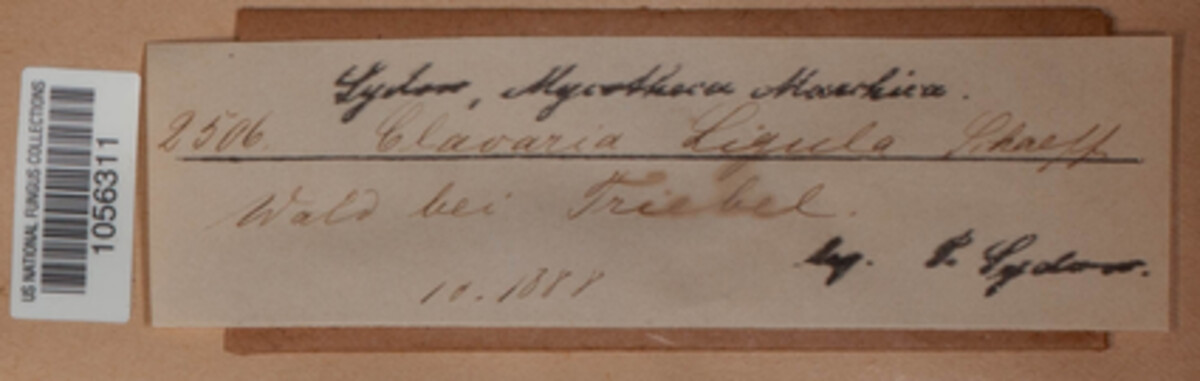 Sydow, Mycotheca Marchica.
2506. Clavaria Ligula Schaeff
Wald bei Triebel.
10. 1888
leg. P. Sydow.
US NATIONAL FUNGUS COLLECTIONS
1056311